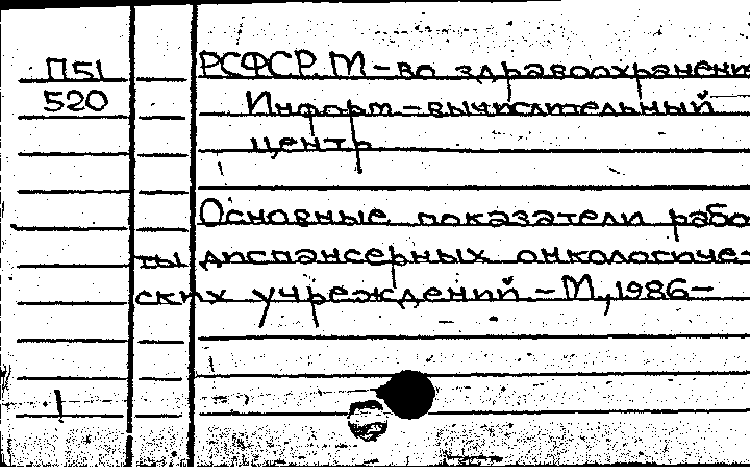 П51
520
РСФСР. М-во здравоохранени
Информ.-вычислительный
центр
Основные показатели рабо
ты диспансерных онкологиче-
ских учреждений. - М., 1986-